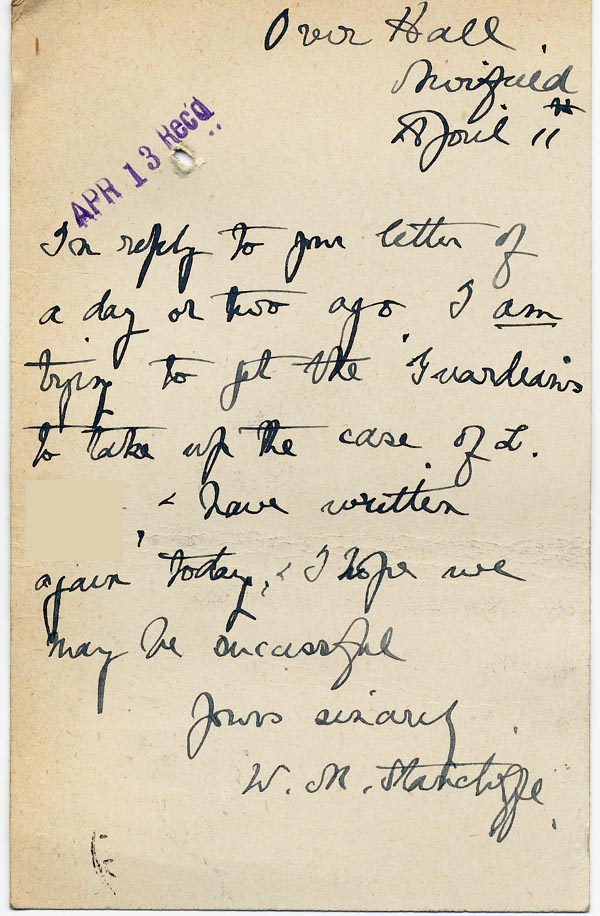 Over Hall
Mirfield
April 11th
APR 13 Rec'd
In reply to your letter of
a day or two ago, I am
trying to get the Guardians
to take up the case of L.
& have written
again today, & I hope we
may be successful
Yours sincerely
W. M. Stancliffe